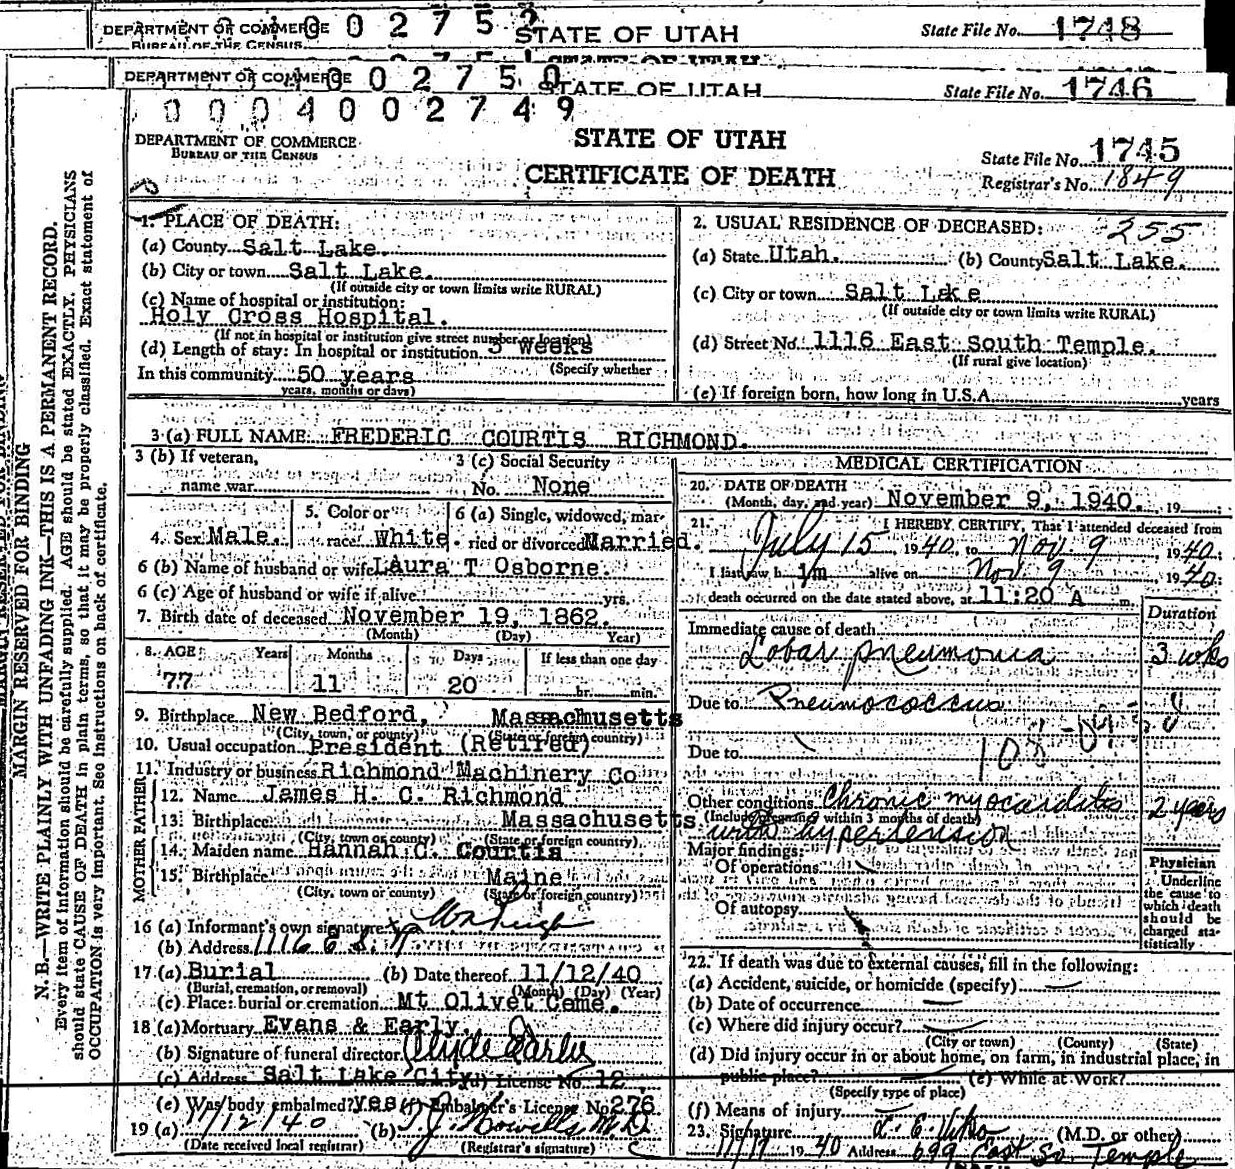 DEPARTMENT OF COMMERCE
BUREAU OF THE CENSUS
0 0 2 7 5 2
STATE OF UTAH
State File No. 1748
DEPARTMENT OF COMMERCE
0 0 2 7 5 0
STATE OF UTAH
State File No. 1746
0 0 0 4 0 0 2 7 4 9
DEPARTMENT OF COMMERCE
BUREAU OF THE CENSUS
STATE OF UTAH
CERTIFICATE OF DEATH
State File No. 1745
Registrar's No. 1849
MARGIN RESERVED FOR BINDING
N. B.—WRITE PLAINLY WITH UNFADING INK—THIS IS A PERMANENT RECORD.
Every item of information should be carefully supplied. AGE should be stated EXACTLY. PHYSICIANS
should state CAUSE OF DEATH in plain terms, so that it may be properly classified. Exact statement of
OCCUPATION is very important. See instructions on back of certificate.
1. PLACE OF DEATH:
(a) County Salt Lake.
(b) City or town Salt Lake.
(If outside city or town limits write RURAL)
(c) Name of hospital or institution:
Holy Cross Hospital.
(If not in hospital or institution give street number or location)
(d) Length of stay: In hospital or institution 3 weeks
(Specify whether
In this community 50 years
years, months or days)
2. USUAL RESIDENCE OF DECEASED: 255
(a) State Utah. (b) County Salt Lake.
(c) City or town Salt Lake
(If outside city or town limits write RURAL)
(d) Street No. 1116 East South Temple.
(If rural give location)
(e) If foreign born, how long in U.S.A. years
3 (a) FULL NAME FREDERIC COURTIS RICHMOND.
3 (b) If veteran,
name war
3 (c) Social Security
No. None
4. Sex Male.
5. Color or
race White.
6 (a) Single, widowed, mar-
ried or divorced Married.
6 (b) Name of husband or wife Laura T Osborne.
6 (c) Age of husband or wife if alive yrs.
7. Birth date of deceased November 19, 1862.
(Month) (Day) Year)
8. AGE Years Months Days If less than one day
77 11 20 hr. min.
9. Birthplace New Bedford, Massachusetts
(City, town, or county) (State or foreign country)
10. Usual occupation President (Retired)
11. Industry or business Richmond Machinery Co
FATHER
12. Name James H. C. Richmond
13. Birthplace Massachusetts
(City, town or county) (State or foreign country)
MOTHER
14. Maiden name Hannah C. Courtis
15. Birthplace Maine
(City, town or county) (State or foreign country)
16 (a) Informant's own signature
(b) Address 1116 E. S.
17. (a) Burial (b) Date thereof 11/12/40
(Burial, cremation, or removal) (Month) (Day) (Year)
(c) Place: burial or cremation Mt Olivet Ceme.
18 (a) Mortuary Evans & Early.
(b) Signature of funeral director Clyde Early
(c) Address Salt Lake City (d) License No. 12
(e) Was body embalmed? yes (f) Embalmer's License No 276
19 (a) 11/12/40 (b) T. J. Howells M.D.
(Date received local registrar) (Registrar's signature)
MEDICAL CERTIFICATION
20. DATE OF DEATH
(Month, day, and year) November 9, 1940. 19
21. I HEREBY CERTIFY, That I attended deceased from
July 15 1940, to Nov 9 1940:
I last saw h im alive on Nov 9 1940:
death occurred on the date stated above, at 11:20 A m.
Duration
Immediate cause of death
Lobar pneumonia 3 wks
Due to Pneumococcus
108
Due to
Other conditions Chronic myocarditis 2 years
(Include pregnancy within 3 months of death)
with hypertension
Major findings:
Of operations
Of autopsy
Physician
Underline
the cause to
which death
should be
charged sta-
tistically
22. If death was due to external causes, fill in the following:
(a) Accident, suicide, or homicide (specify)
(b) Date of occurrence
(c) Where did injury occur?
(City or town) (County) (State)
(d) Did injury occur in or about home, on farm, in industrial place, in
public place? (e) While at Work?
(Specify type of place)
(f) Means of injury
23. Signature (M.D. or other)
11/11 1940 Address 699 East So. Temple